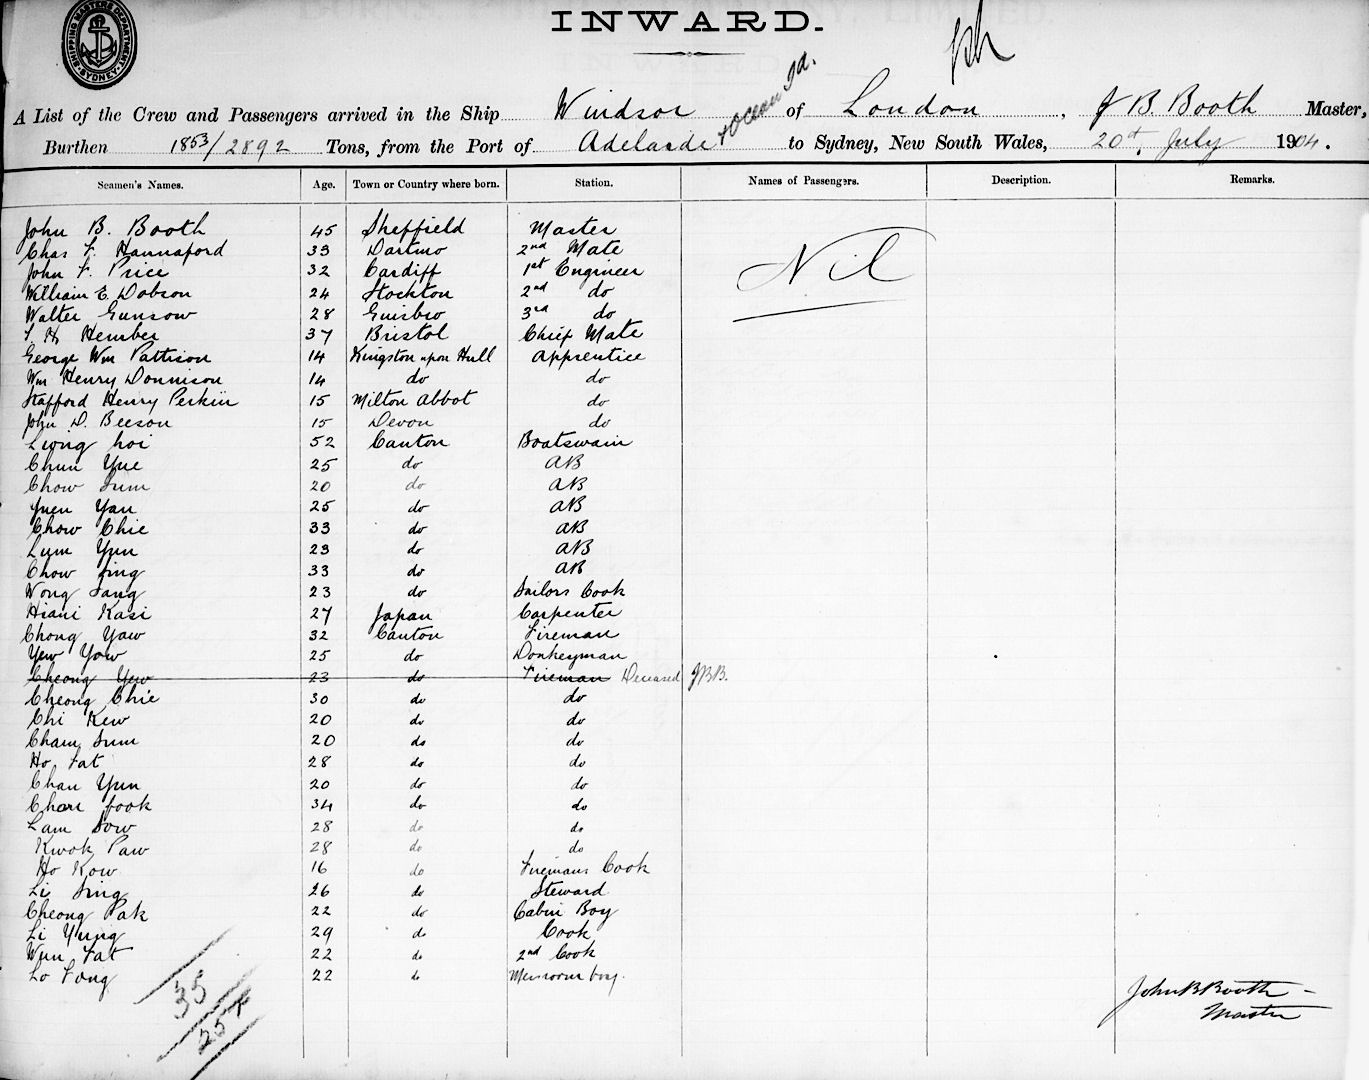 SHIPPING MASTER'S DEPARTMENT SYDNEY
INWARD.
A List of the Crew and Passengers arrived in the Ship Windsor of London, J B. Booth Master,
+ Ocean Id.
Burthen 1853/2892 Tons, from the Port of Adelaide to Sydney, New South Wales, 20th July 1904.
Seamen's Names. Age. Town or Country where born. Station. Names of Passengers. Description. Remarks.
John B. Booth 45 Sheffield Master
Chas F. Hannaford 33 Dartmo 2nd Mate
Nil
John F. Price 32 Cardiff 1st Engineer
William E. Dobson 24 Stockton 2nd do
Walter Gunsow 28 Guisbro 3rd do
T. H. Hember 37 Bristol Chief Mate
George Wm Pattison 14 Kingston upon Hull Apprentice
Wm Henry Donnison 14 do do
Stafford Henry Perkin 15 Milton Abbot do
John D. Beeson 15 Devon do
Liong hoi 52 Canton Boatswain
Chun Yue 25 do AB
Chow Sum 20 do AB
Yuen Yau 25 do AB
Chow Chie 33 do AB
Lum Yun 23 do AB
Chow Sing 33 do AB
Wong Sang 23 do Sailors Cook
Hiani Kasi 27 Japan Carpenter
Chong Yaw 32 Canton Fireman
Yew Yow 25 do Donkeyman
Cheong Yew 23 do Fireman Deceased JBB.
Cheong Chie 30 do do
Chi Kew 20 do do
Cham Sum 20 do do
Ho Fat 28 do do
Chan Yun 20 do do
Chan fook 34 do do
Lam Sow 28 do do
Kwok Paw 28 do do
Ho Kow 16 do Firemans Cook
Li Sing 26 do Steward
Cheong Pak 22 do Cabin Boy
Li Yung 29 do Cook
Wun Fat 22 do 2nd Cook
Lo Fong 22 do Messroom boy.
35
257
John B Booth
Master